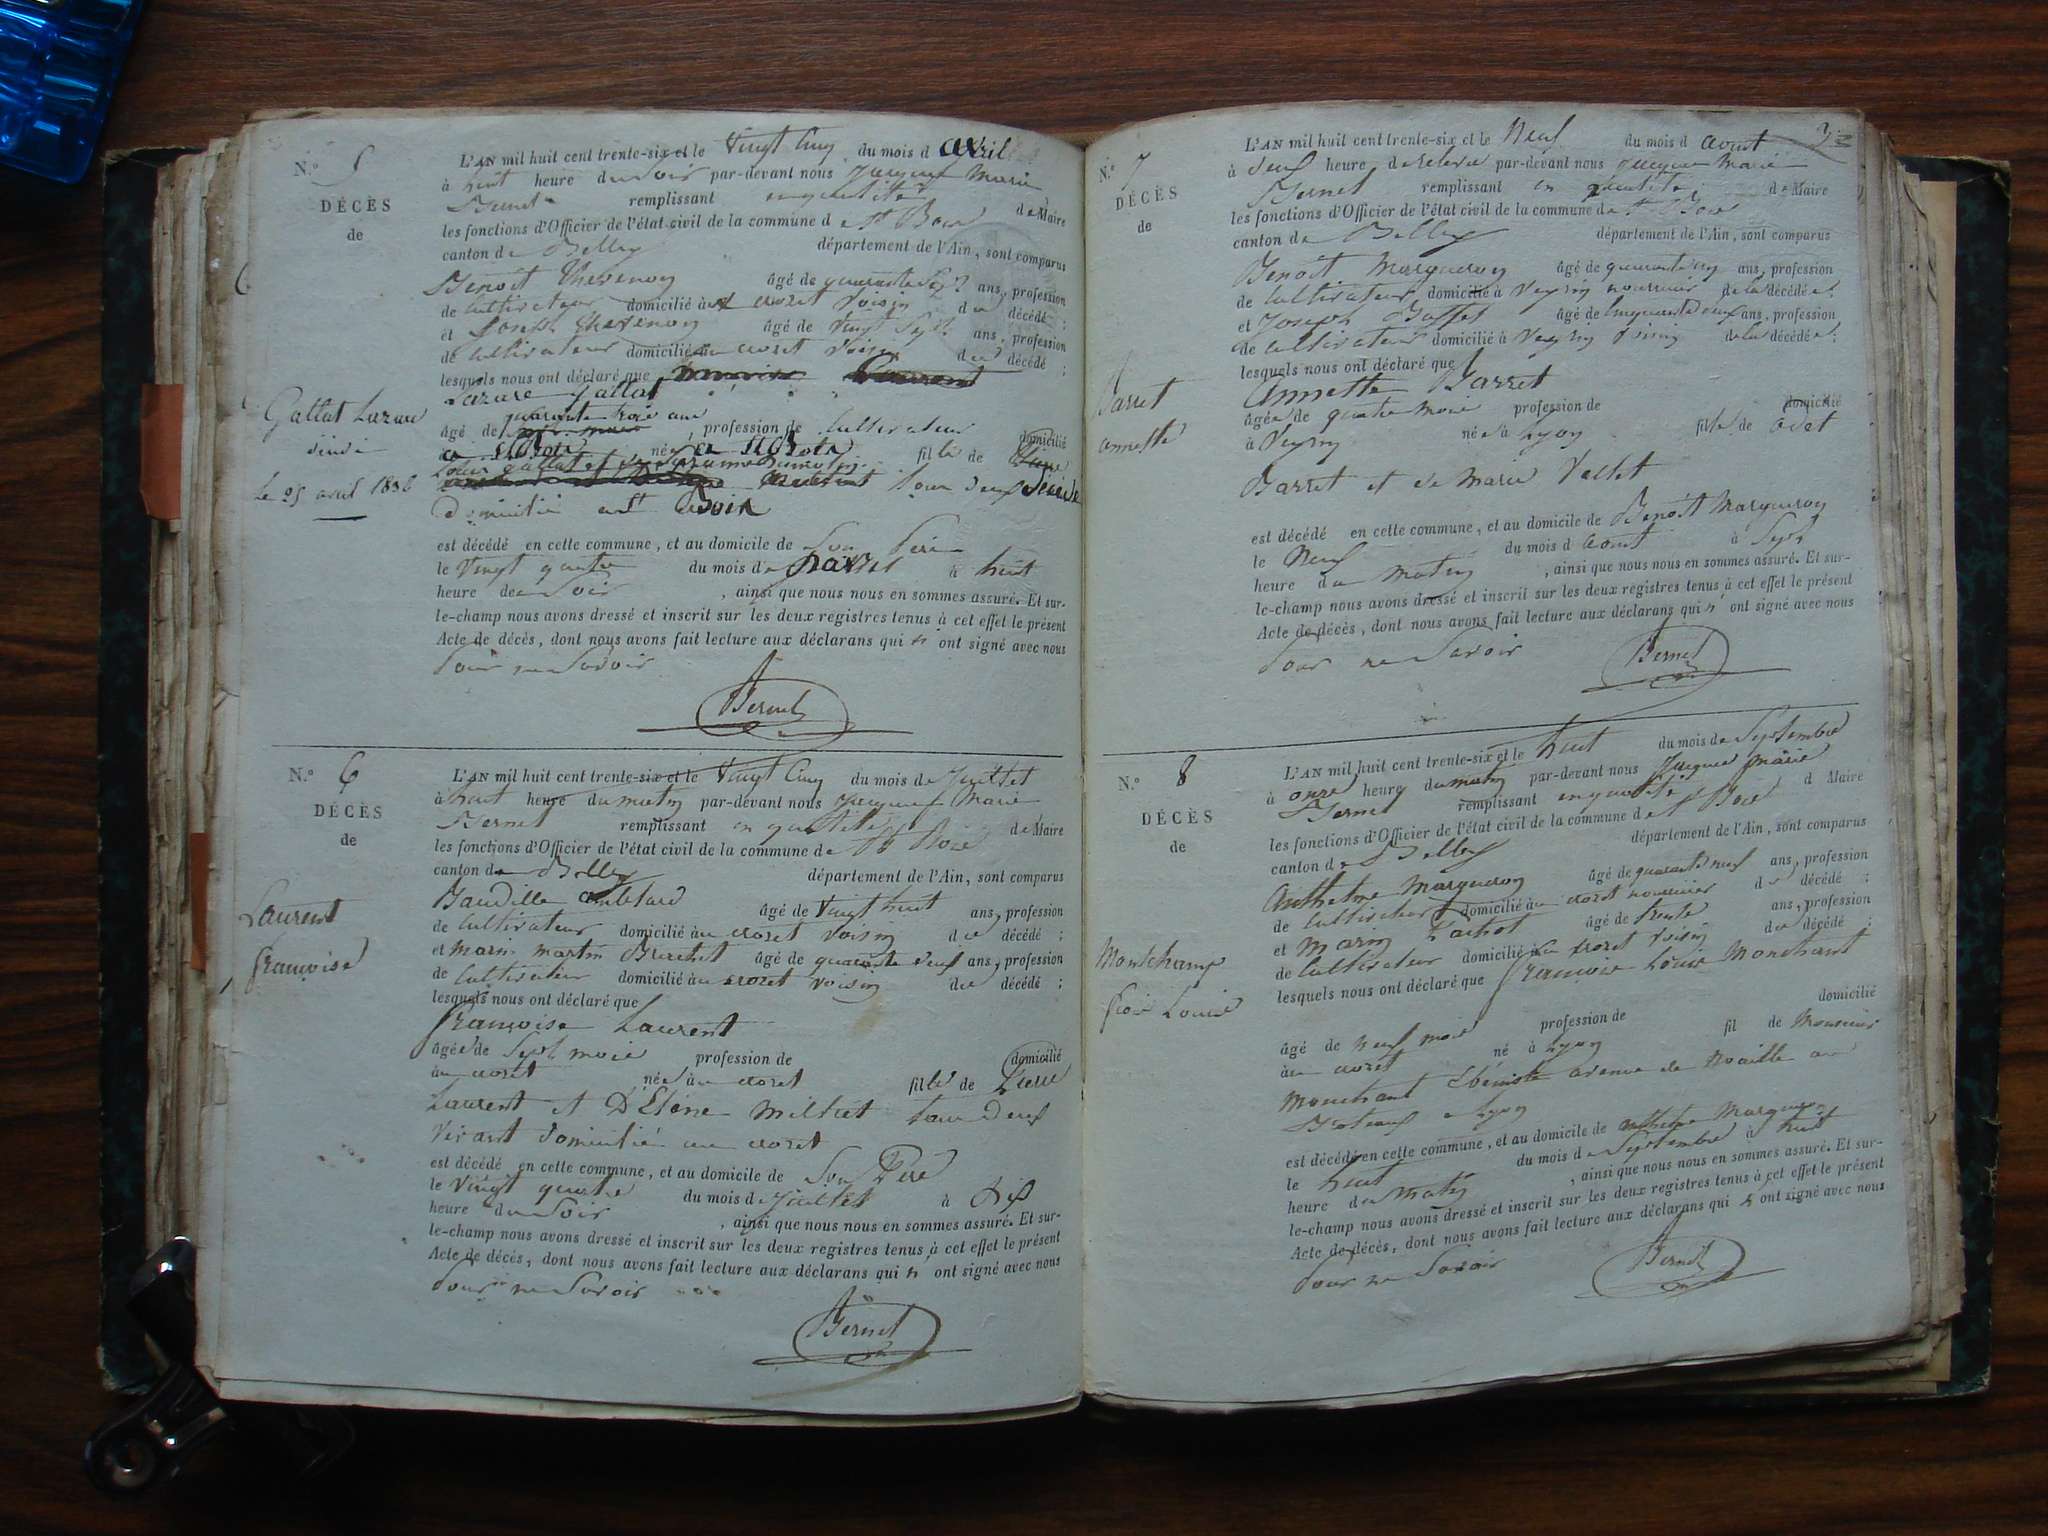 N.° 5
DÉCÈS
de
Gallat Lazare
décédé
le 25 avril 1836
L'AN mil huit cent trente-six et le Vingt Cinq du mois d avril
à huit heure du Soir par-devant nous Jacques Marie
Bernet remplissant en qualité de Maire
les fonctions d'Officier de l'état civil de la commune de St Bois
canton de Belley département de l'Ain, sont comparus
Benoît Thevenon âgé de quarante sept ans, profession
de Cultivateur domicilié au crozet Voisin du décédé ;
et Joseph Thevenon âgé de Vingt Sept ans, profession
de Cultivateur domicilié au crozet Voisin du décédé ;
lesquels nous ont déclaré que
Lazare Gallat
quarante trois ans
âgé de profession de Cultivateur domicilié
à St Bois né à St Bois fils de
Louis gallat et de tous deux décédé
domicilié à St Bois
est décédé en cette commune, et au domicile de Son Père
le Vingt quatre du mois d' avril à huit
heure de Soir , ainsi que nous nous en sommes assuré. Et sur-
le-champ nous avons dressé et inscrit sur les deux registres tenus à cet effet le présent
Acte de décès, dont nous avons fait lecture aux déclarans qui n ont signé avec nous
Pour ne Savoir
Bernet
N.° 6
DÉCÈS
de
Laurent
françoise
L'AN mil huit cent trente-six et le Vingt Cinq du mois de Juillet
à huit heure du matin par-devant nous Jacques Marie
Bernet remplissant en qualité de Maire
les fonctions d'Officier de l'état civil de la commune de St Bois
canton de Belley département de l'Ain, sont comparus
Baudille âgé de Vingt huit ans, profession
de Cultivateur domicilié au crozet Voisin du décédé ;
et Marin martin Brechet âgé de quarante neuf ans, profession
de Cultivateur domicilié au crozet voisin du décédé ;
lesquels nous ont déclaré que
françoise Laurent
âgée de Sept mois profession de domicilié
au crozet née au crozet fille de Pierre
Laurent et D'Elène Milliet tous deux
vivant domicilié au crozet
est décédé en cette commune, et au domicile de Son Père
le Vingt quatre du mois de Juillet à Dix
heure du Soir , ainsi que nous nous en sommes assuré. Et sur-
le-champ nous avons dressé et inscrit sur les deux registres tenus à cet effet le présent
Acte de décès, dont nous avons fait lecture aux déclarans qui n ont signé avec nous
Pour ne Savoir
Bernet
N.° 7
DÉCÈS
de
Barret
annette
L'AN mil huit cent trente-six et le Neuf du mois d aout
à heure de relevée par-devant nous Jacques Marie
Bernet remplissant en qualité de Maire
les fonctions d'Officier de l'état civil de la commune de St Bois
canton de Belley département de l'Ain, sont comparus
Benoît Marqueron âgé de quarante cinq ans, profession
de Cultivateur, domicilié à Veyrin nourricier de la décédée ;
et Joseph Basset âgé de Cinquante deux ans, profession
de Cultivateur domicilié à Veyrin Voisin de la décédée ;
lesquels nous ont déclaré que
Annette Barret
âgée de quatre mois profession de domicilié
à Veyrin née à Lyon fille de
Barret et de Marie Vallet
est décédé en cette commune, et au domicile de Benoît Marqueron
le Neuf du mois d aout à Sept
heure du matin , ainsi que nous nous en sommes assuré. Et sur-
le-champ nous avons dressé et inscrit sur les deux registres tenus à cet effet le présent
Acte de décès, dont nous avons fait lecture aux déclarans qui n ont signé avec nous
Pour ne Savoir
Bernet
N.° 8
DÉCÈS
de
Montchamp
Louise
L'AN mil huit cent trente-six et le huit du mois de Septembre
à onze heure du matin par-devant nous Jacques Marie
Bernet remplissant en qualité d Maire
les fonctions d'Officier de l'état civil de la commune de St Bois
canton de Belley département de l'Ain, sont comparus
Anthelme Marqueron âgé de quarante neuf ans, profession
de Cultivateur domicilié au crozet nourricier du décédé ;
et Marin âgé de trente ans, profession
de Cultivateur domicilié au crozet Voisin du décédé ;
lesquels nous ont déclaré que françoise Louise Monchant
âgé de neuf mois profession de domicilié
au crozet né à Lyon fil de Monsieur
Monchant Ebéniste avenue de Noaille au
Broteaux Lyon
est décédé en cette commune, et au domicile de anthelme Marqueron
le huit du mois de Septembre à huit
heure du Matin , ainsi que nous nous en sommes assuré. Et sur-
le-champ nous avons dressé et inscrit sur les deux registres tenus à cet effet le présent
Acte de décès, dont nous avons fait lecture aux déclarans qui n ont signé avec nous
Pour ne Savoir
Bernet